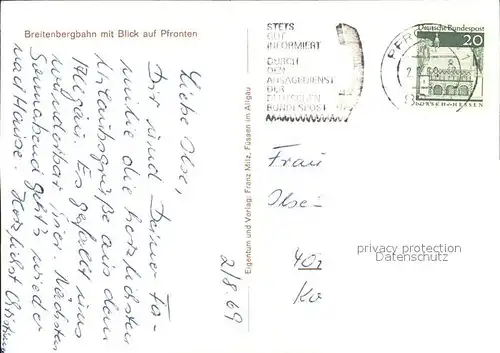 Breitenbergbahn mit Blick auf Pfronten
Liebe Ilse,
Dir und Deiner Fa-
milie die herzlichsten
Urlaubsgrüße aus dem
Allgäu. Es gefällt uns
wunderbar hier. Nächsten
Sonnabend geht's wieder
nach Hause. Herzlichst Christina
Eigentum und Verlag: Franz Milz, Füssen im Allgäu
2/8.69
STETS
GUT
INFORMIERT
DURCH
DEN
ANSAGEDIENST
DER
DEUTSCHEN
BUNDESPOST
PFR
Deutsche Bundespost
20
LORSCH-HESSEN
Frau
Ilse
privacy protection
Datenschutz